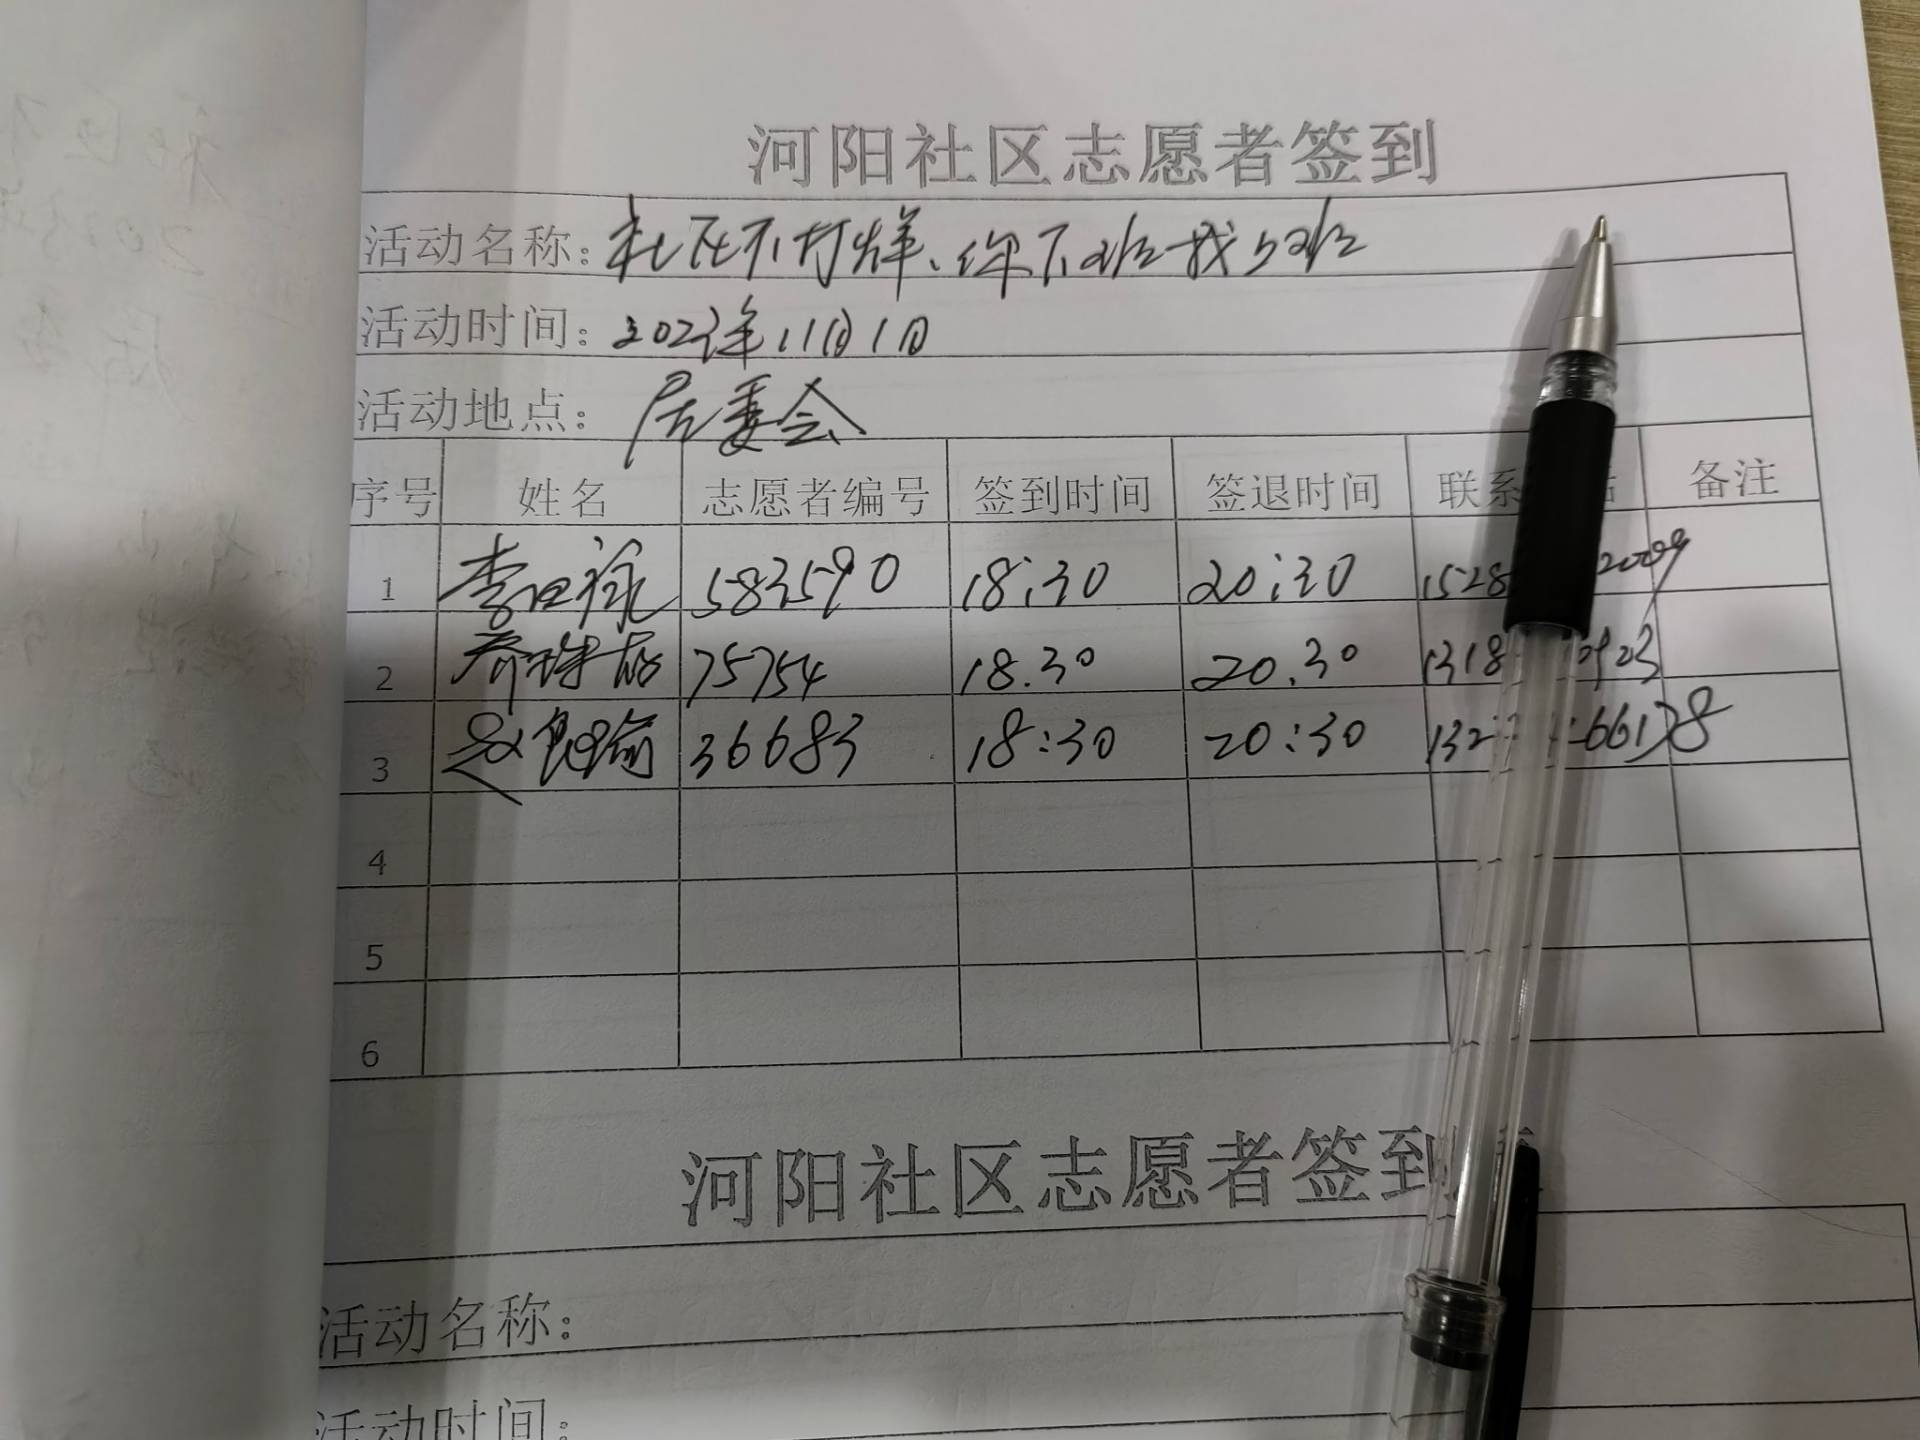 河阳社区志愿者签到
活动名称：社区不打烊、你下班我上班
活动时间：2023年11月1日
活动地点：居委会
序号 姓名 志愿者编号 签到时间 签退时间 联系 备注
1 李 583590 18:30 20:30 1528 2009
2 乔 75754 18.30 20.30 1318 2923
3 赵 36683 18:30 20:30 132 66138
4
5
6
河阳社区志愿者签到
活动名称：
活动时间：